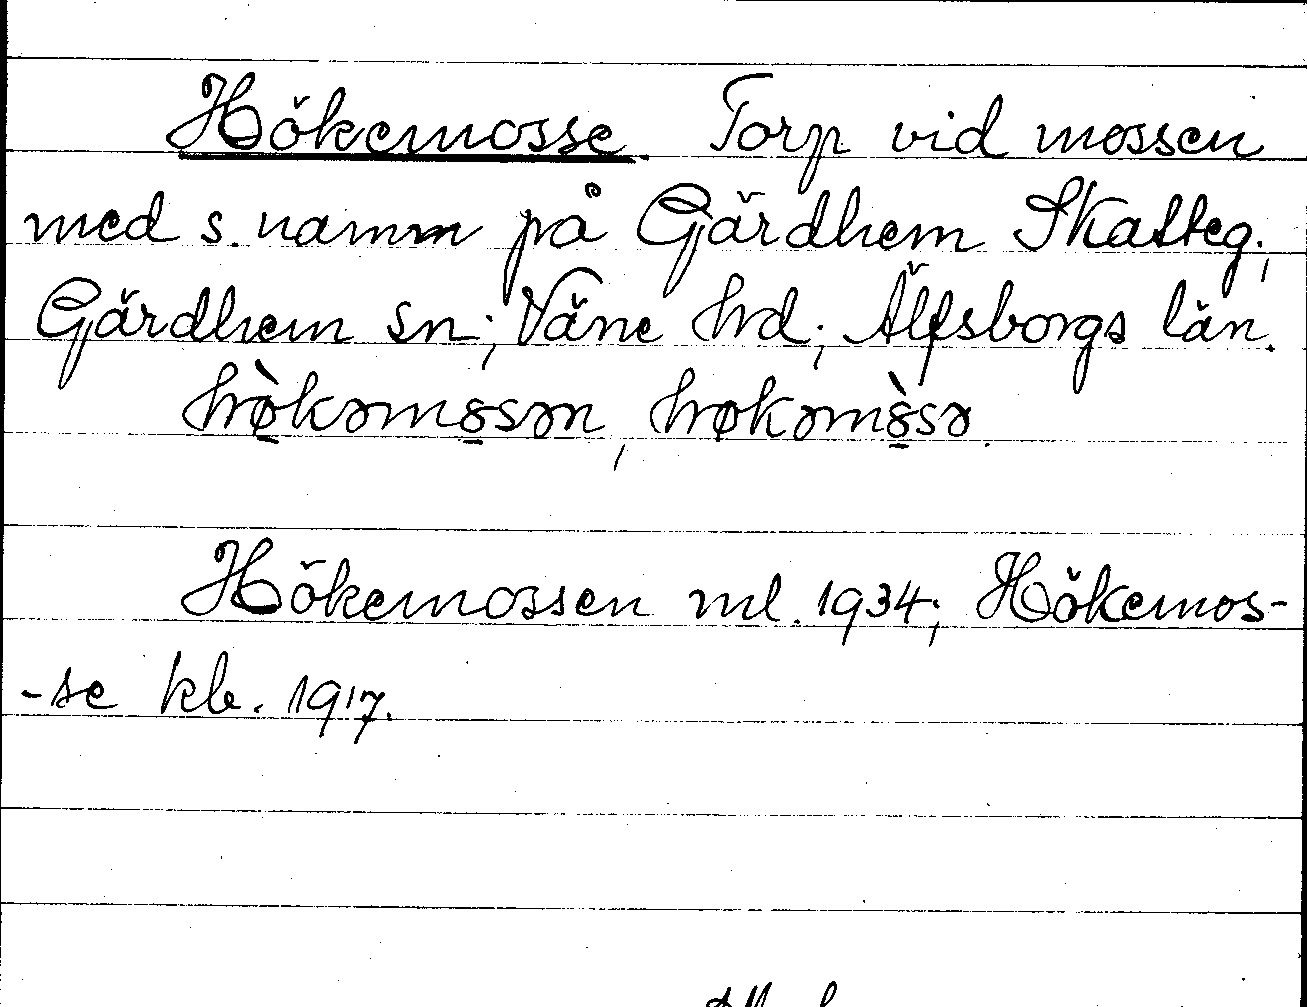 Hökemosse. Torp vid mossen
med s. namn på Gärdhem Skatteg.,
Gärdhem sn; Väne hd; Älfsborgs län.
hø̀kəmo̲sən, høkəmò̲sə.
Hökemossen ml. 1934; Hökemos-
-se kb. 1917.